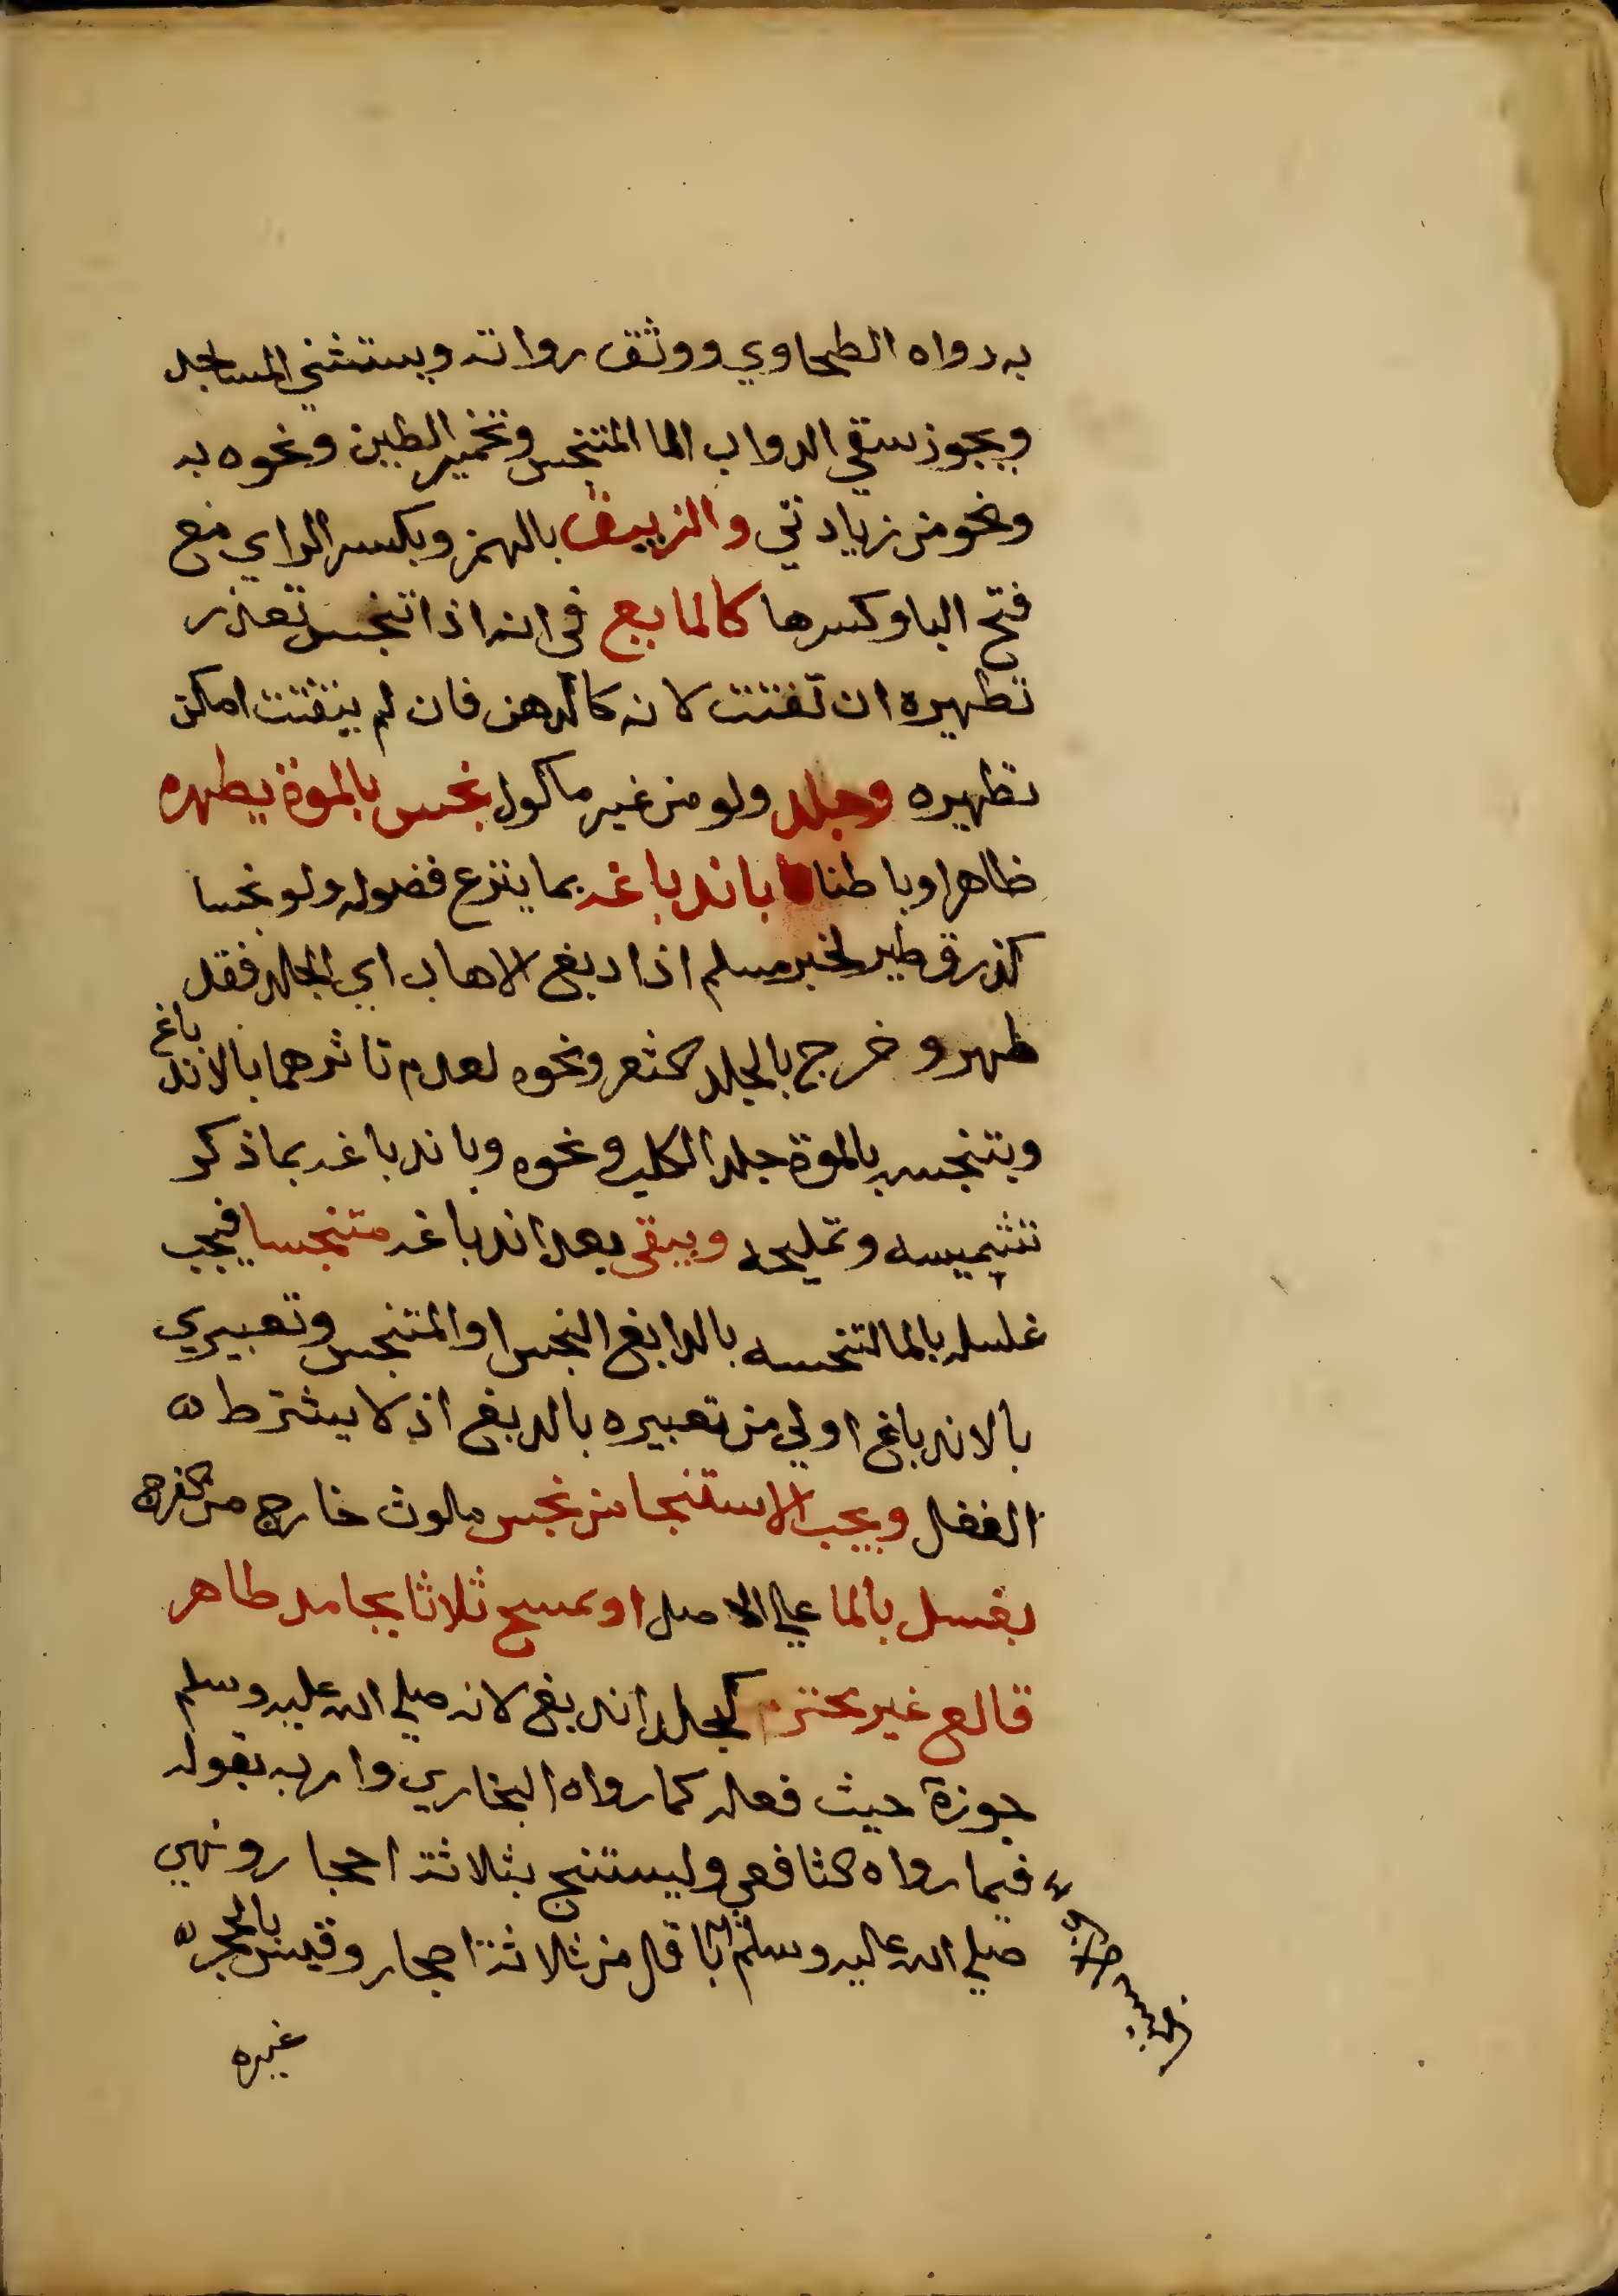 به رواه الطحاوي ووثق رواته ويستثني المساجد
ويجوز سقي الدواب الما المتنجس وتخمير الطين ونحوه به
ونحو من زيادتي والزيبق بالهمز وبكسر الزاي مع
فتح البا وكسرها كالمايع في انه اذا تنجس تعذر
تطهيره ان تفتت لانه كالدهن فان لم يتفتت امكن
تطهيره وجلد ولو من غير ماكول نجس بالموت يطهره
ظاهرا وباطنا باندباغه بما ينزع فضوله ولو نجسا
كذرق طير لخبر مسلم اذا دبغ الاهاب اي الجلد فقد
طهر وخرج بالجلد الشعر ونحوه لعدم تاثرهما بالاندباغ
وبتنجسه بالموت جلد الكلب ونحوه وباندباغه بما ذكر
تشميسه وتمليحه ويبقى بعد اندباغه متنجسا فيجب
غسله بالما لتنجسه بالدابغ النجس او المتنجس وتعبيري
بالاندباغ اولي من تعبيره بالدبغ اذ لا يشترط
الفعل ويجب الاستنجا من نجس ملوث خارج من الفرج
بغسل بالما علي الاصل او بمسح ثلاثا بجامد طاهر
قالع غير محترم كجلد اندبغ لانه صلي الله عليه وسلم
جوزه حيث فعله كما رواه البخاري وامر به بقوله
فيما رواه الشافعي وليستنج بثلاثة احجار ونهي
صلي الله عليه وسلم باقل من ثلاثة احجار وقيس بالحجر
غيره